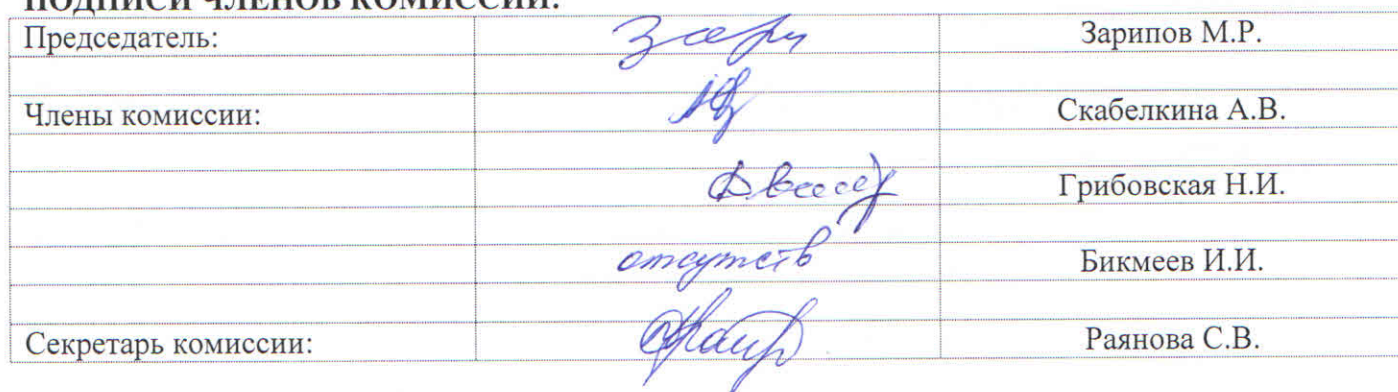 ПОДПИСИ ЧЛЕНОВ КОМИССИИ:
Председатель: Зарипов М.Р.
Члены комиссии: Скабелкина А.В.
Грибовская Н.И.
отсутств Бикмеев И.И.
Секретарь комиссии: Раянова С.В.